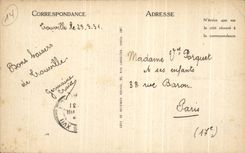 14
CORRESPONDANCE
ADRESSE
N'écrire que sur
le côté réservé à
la correspondance
Trouville le 29.8.31.
Bons baisers
de Trouville
Germaine
Madame Vve Porquet
et ses enfants
38 rue Baron
Paris
(17e)